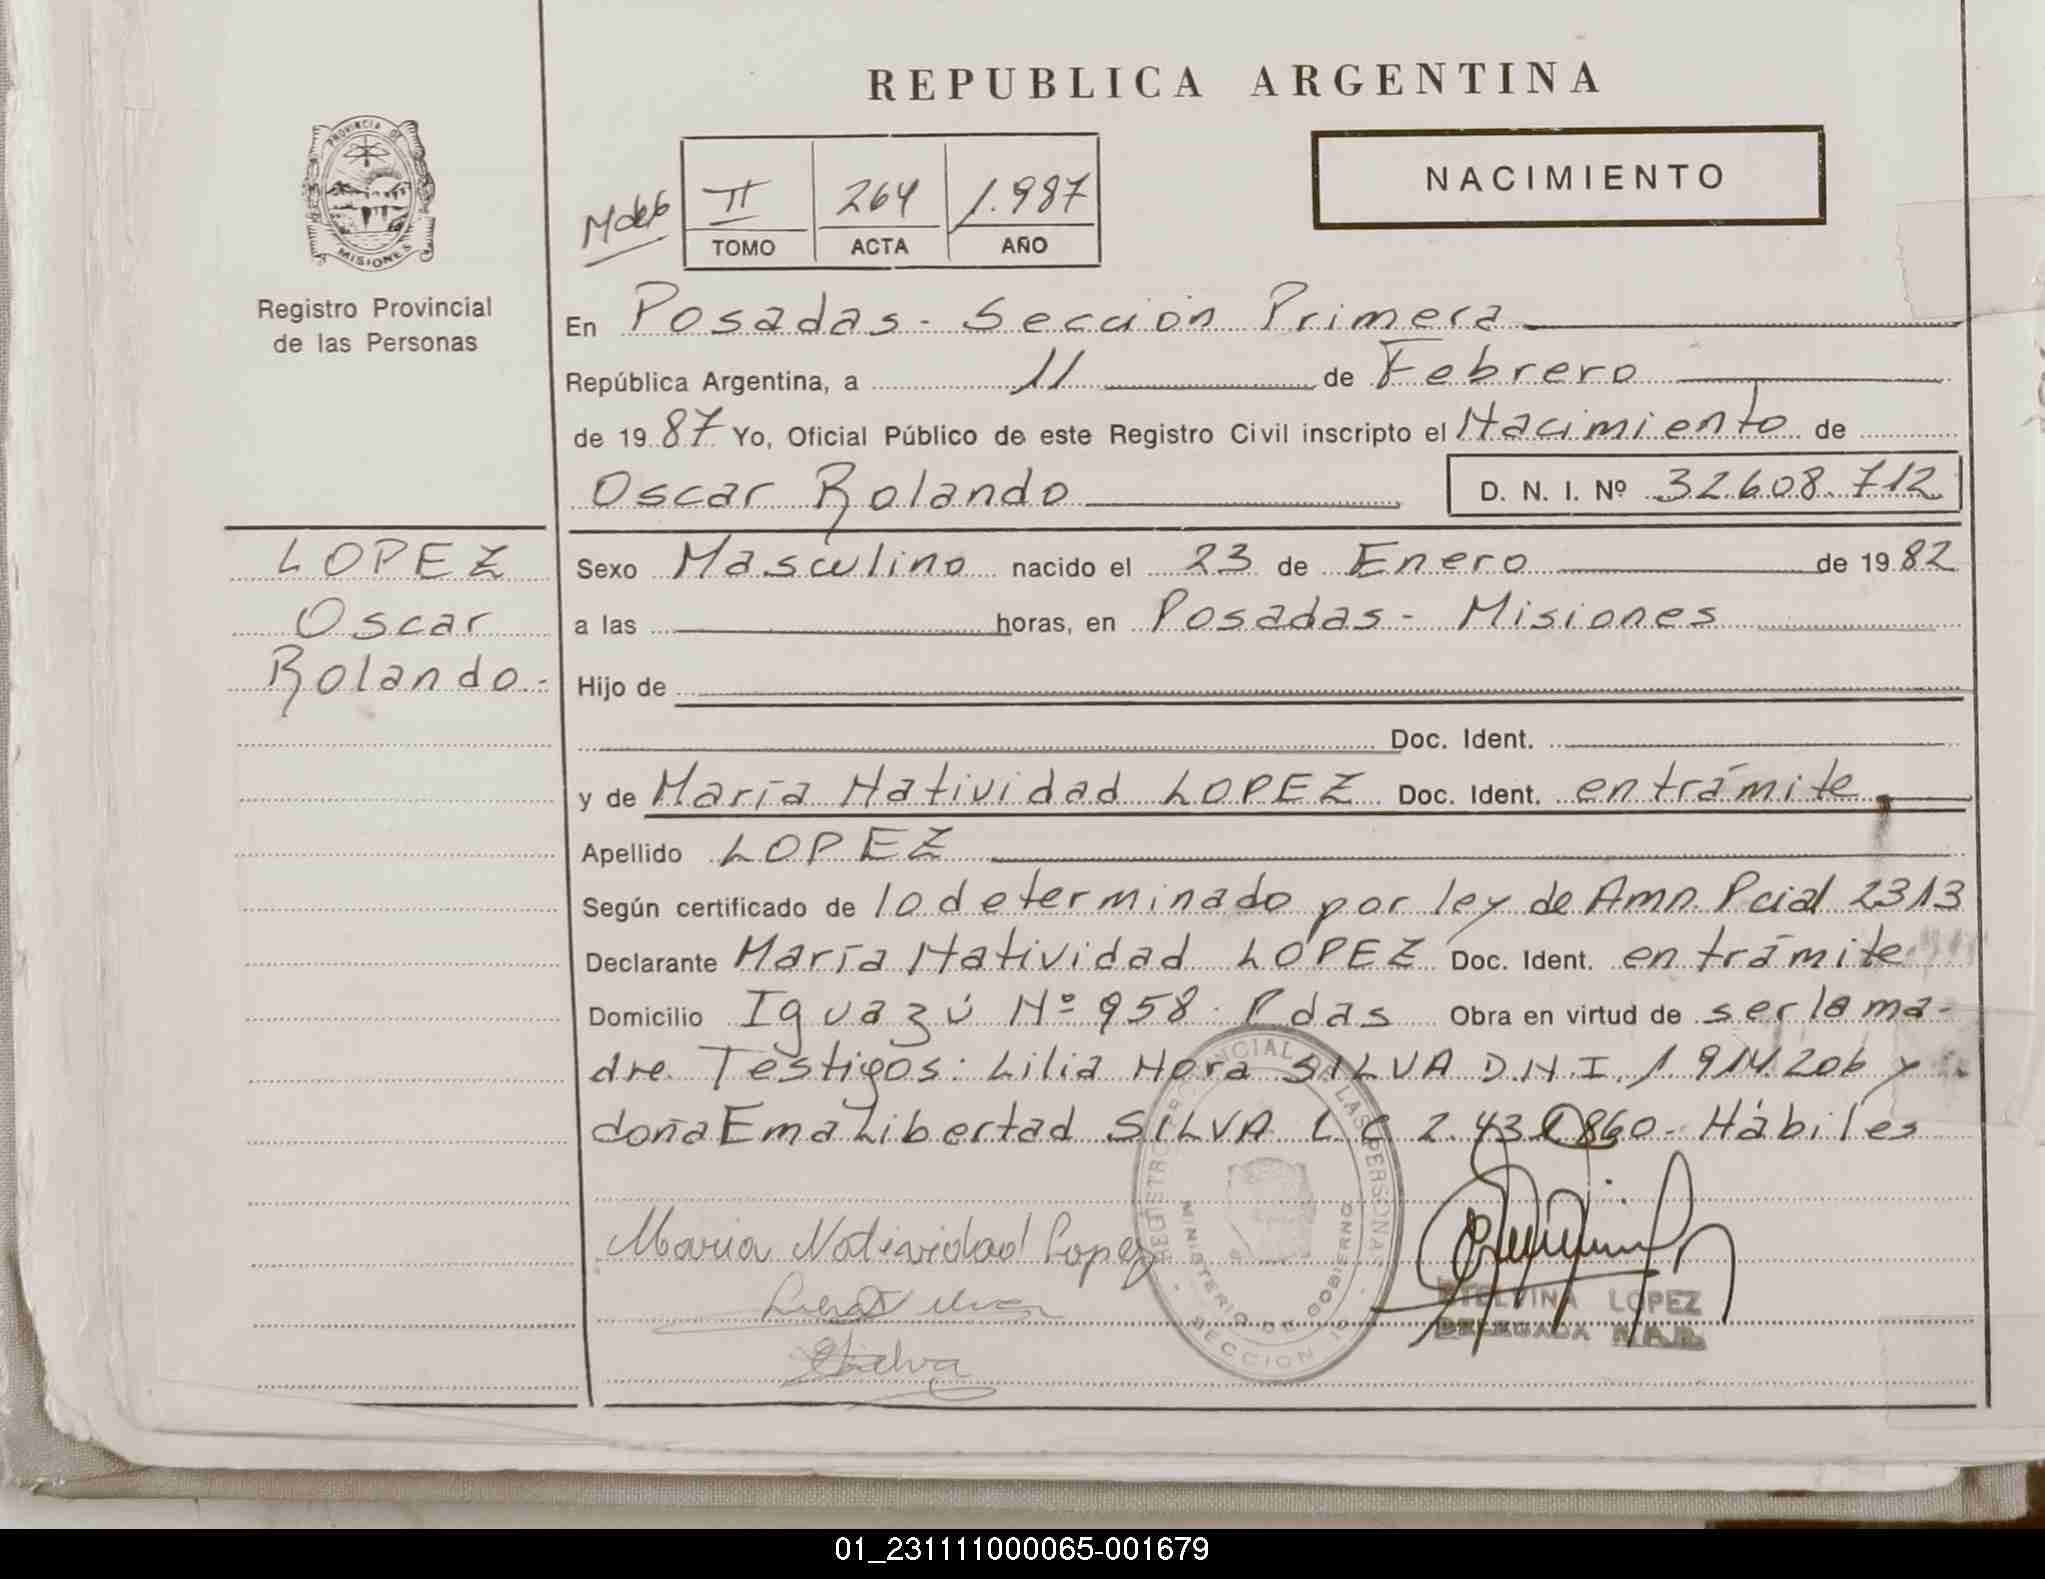 REPUBLICA ARGENTINA
PROVINCIA DE MISIONES
Registro Provincial
de las Personas
II 264 1.987
TOMO ACTA AÑO
NACIMIENTO
En Posadas - Sección Primera
República Argentina, a 11 de Febrero
de 19 87 Yo, Oficial Público de este Registro Civil inscripto el Nacimiento de
Oscar Rolando D. N. I. Nº 32.608.712
LOPEZ
Oscar
Rolando.-
Sexo Masculino nacido el 23 de Enero de 19 82
a las horas, en Posadas - Misiones
Hijo de
Doc. Ident.
y de María Natividad LOPEZ Doc. Ident. en trámite
Apellido LOPEZ
Según certificado de lo determinado por ley de Amn. Pcial 2313
Declarante María Natividad LOPEZ Doc. Ident. en trámite
Domicilio Iguazú Nº 958 - Pdas Obra en virtud de ser la ma-
dre. Testigos: Lilia Nora SILVA D.N.I. 1.914.206 y
doña Ema Libertad SILVA L C 2.431.860 - Hábiles
Maria Natividad Lopez
REGISTRO PROVINCIAL DE LAS PERSONAS
MINISTERIO DE GOBIERNO
SECCION 1º
ETELVINA LOPEZ
DELEGADA
01_231111000065-001679